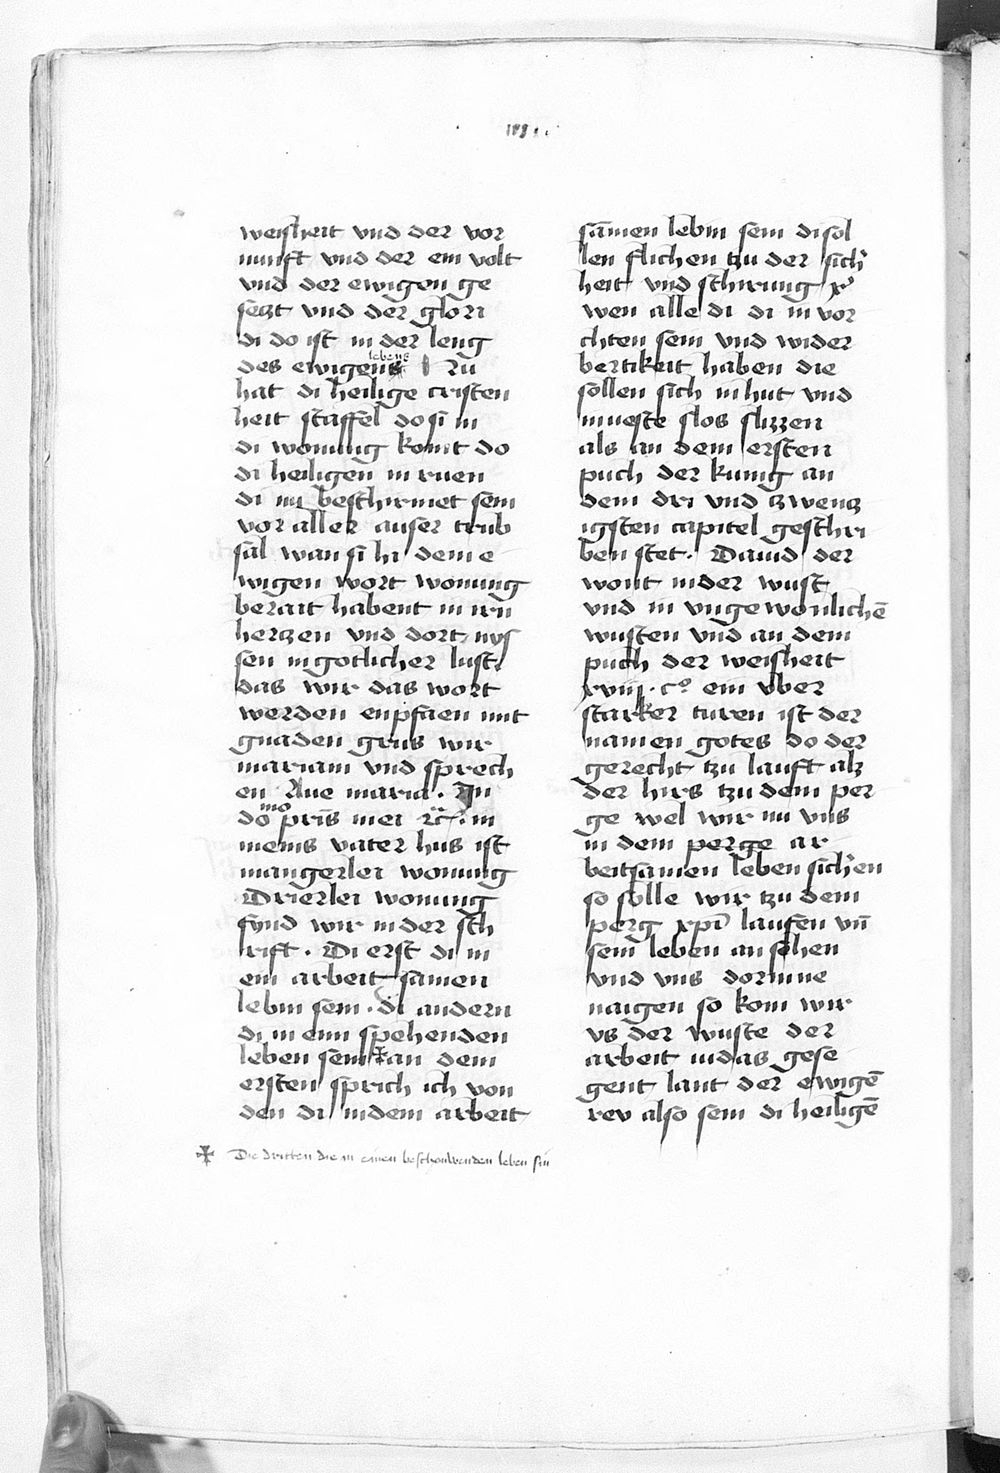 weisheit vnd der vor
nunft vnd der ein volt
vnd der ewigen ge
seczt vnd der glori
di do ist in der leng
des ewigens lebens Zu
hat di heilige cristen
heit staffel do si in
di wonung komt do
di heiligen in ruen
di nu beschirmet sein
vor aller auser trub
sal wan si hi dem e
wigen wort wonung
berait habent in irn
herczen vnd dort nys
sen in gotlicher lust
das wir das wort
werden enpfaen mit
gnaden grus wir
mariam vnd sprech
en Aue maria. In
domo pris mei ic. in
meins vater hus ist
mangerlei wonung
Drierlei wonung
fynd wir in der sch
rift. Di erst di in
ein arbeit samen
lebin sein. di andern
di in eim spehenden
leben sein an dem
ersten sprich ich von
den di in dem arbeit
Die dritten die in einen beschouwenden leben sin
samen lebin sein di sol
len flichen tzu der sich
heit vnd schirung xpi
wen alle di di in vor
chten sein vnd wider
bertikeit haben die
sollen sich in hut vnd
in ueste slos slizzen
als an dem ersten
puch der kunig an
dem dri vnd zwencz
igsten capitel geschri
ben stet. Dauid der
wont in der wust
vnd in vngewonlichē
wusten vnd an dem
puch der weisheit
xviij. cͦ ein vber
starker turen ist der
namen gotes do der
gerecht tzu lauft alz
der hirs tzu dem per
ge wel wir nu vns
in dem perge ar
beitsamen leben sichen
so solle wir tzu dem
perg xpi laufen vn̄
sein leben an sehen
vnd vns dorinne
naigen so kom wir
vs der wuste der
arbeit in das gese
gent lant der ewigē
rev also sein di heiligē